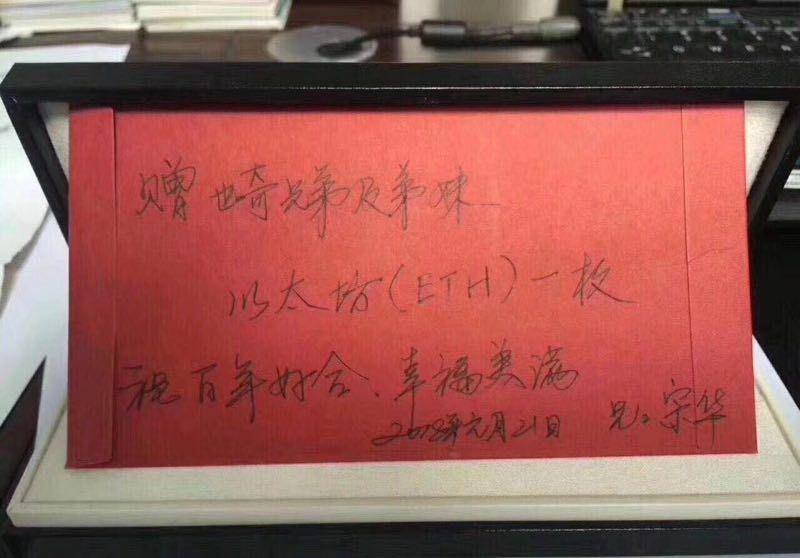 赠 世奇兄弟及弟妹
以太坊(ETH)一枚
祝百年好合、幸福美满
2018年元月21日 兄:宗华